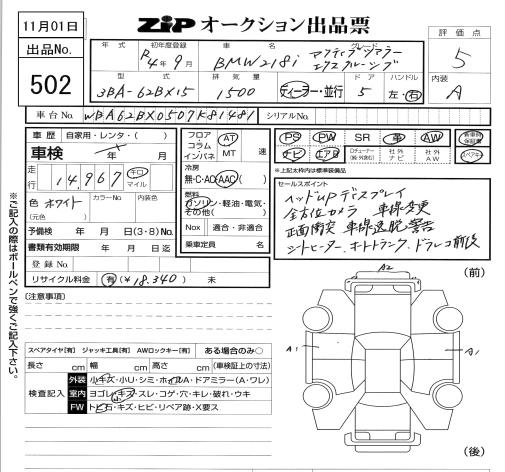 11月01日
ZIPオークション出品票
評価点
5
内装
A
出品No.
502
年式
初年度登録
車名
グレード
R4年9月
BMW218i
アクティブツアラー
エクスクルーシブ
型式
排気量
ドア
ハンドル
3BA-6BX15
1500
ディーラー・並行
5
左・右
車台No.
WBA62BX0507K81481
シリアルNo.
車歴
自家用・レンタ・( )
車検
年 月
走行
14,967
キロ
マイル
色
ホワイト
(元色)
カラーNo.
内装色
予備検 年 月 日(3・8)No.
書類有効期限 年 月 日迄
登録No.
リサイクル料金 有(¥18,340) 未
フロア
コラム
インパネ
AT
MT
速
冷房
無・C・AC・AAC( )
燃料
ガソリン・軽油・電気・
その他( )
Nox
適合・非適合
乗車定員 名
PS PW SR 革 AW
ナビ エアB
Dチューナー
社外ナビ
社外AW
新車時保証書
スペアキー
※上記太枠内は標準装備品
セールスポイント
ヘッドUPディスプレイ
全方位カメラ 車線変更
正面衝突 車線逸脱 警告
シートヒーター、オートトランク、ドラレコ前後
[注意事項]
スペアタイヤ[有] ジャッキ工具[有] AWロックキー[有] ある場合のみ○
長さ cm 幅 cm 高さ cm (車検証上の寸法)
検査記入
外装 小キズ・小U・シミ・ホイルA・ドアミラー(A・ワレ)
室内 ヨゴレ・キズ・スレ・コゲ・穴・キレ・破れ・ウキ
小
FW トビ石・キズ・ヒビ・リペア跡・X要ス
(前)
A2
A1
A1
(後)
※ご記入の際はボールペンで強くご記入下さい。